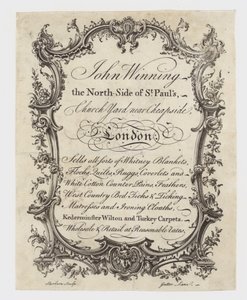 John Winning
the North-Side of St. Paul's,
Church Yard near Cheapside,
London
Sells all sorts of Whitney Blankets,
Flocks, Quilts, Ruggs, Coverlets and
White Cotton Counter Pains, Feathers,
West Country Bed Ticks & Ticking
Matresses and Ironing Cloaths,
Kederminster Wilton and Turkey Carpets
Wholesale & Retail at Reasonable Rates,
Gutter Lane